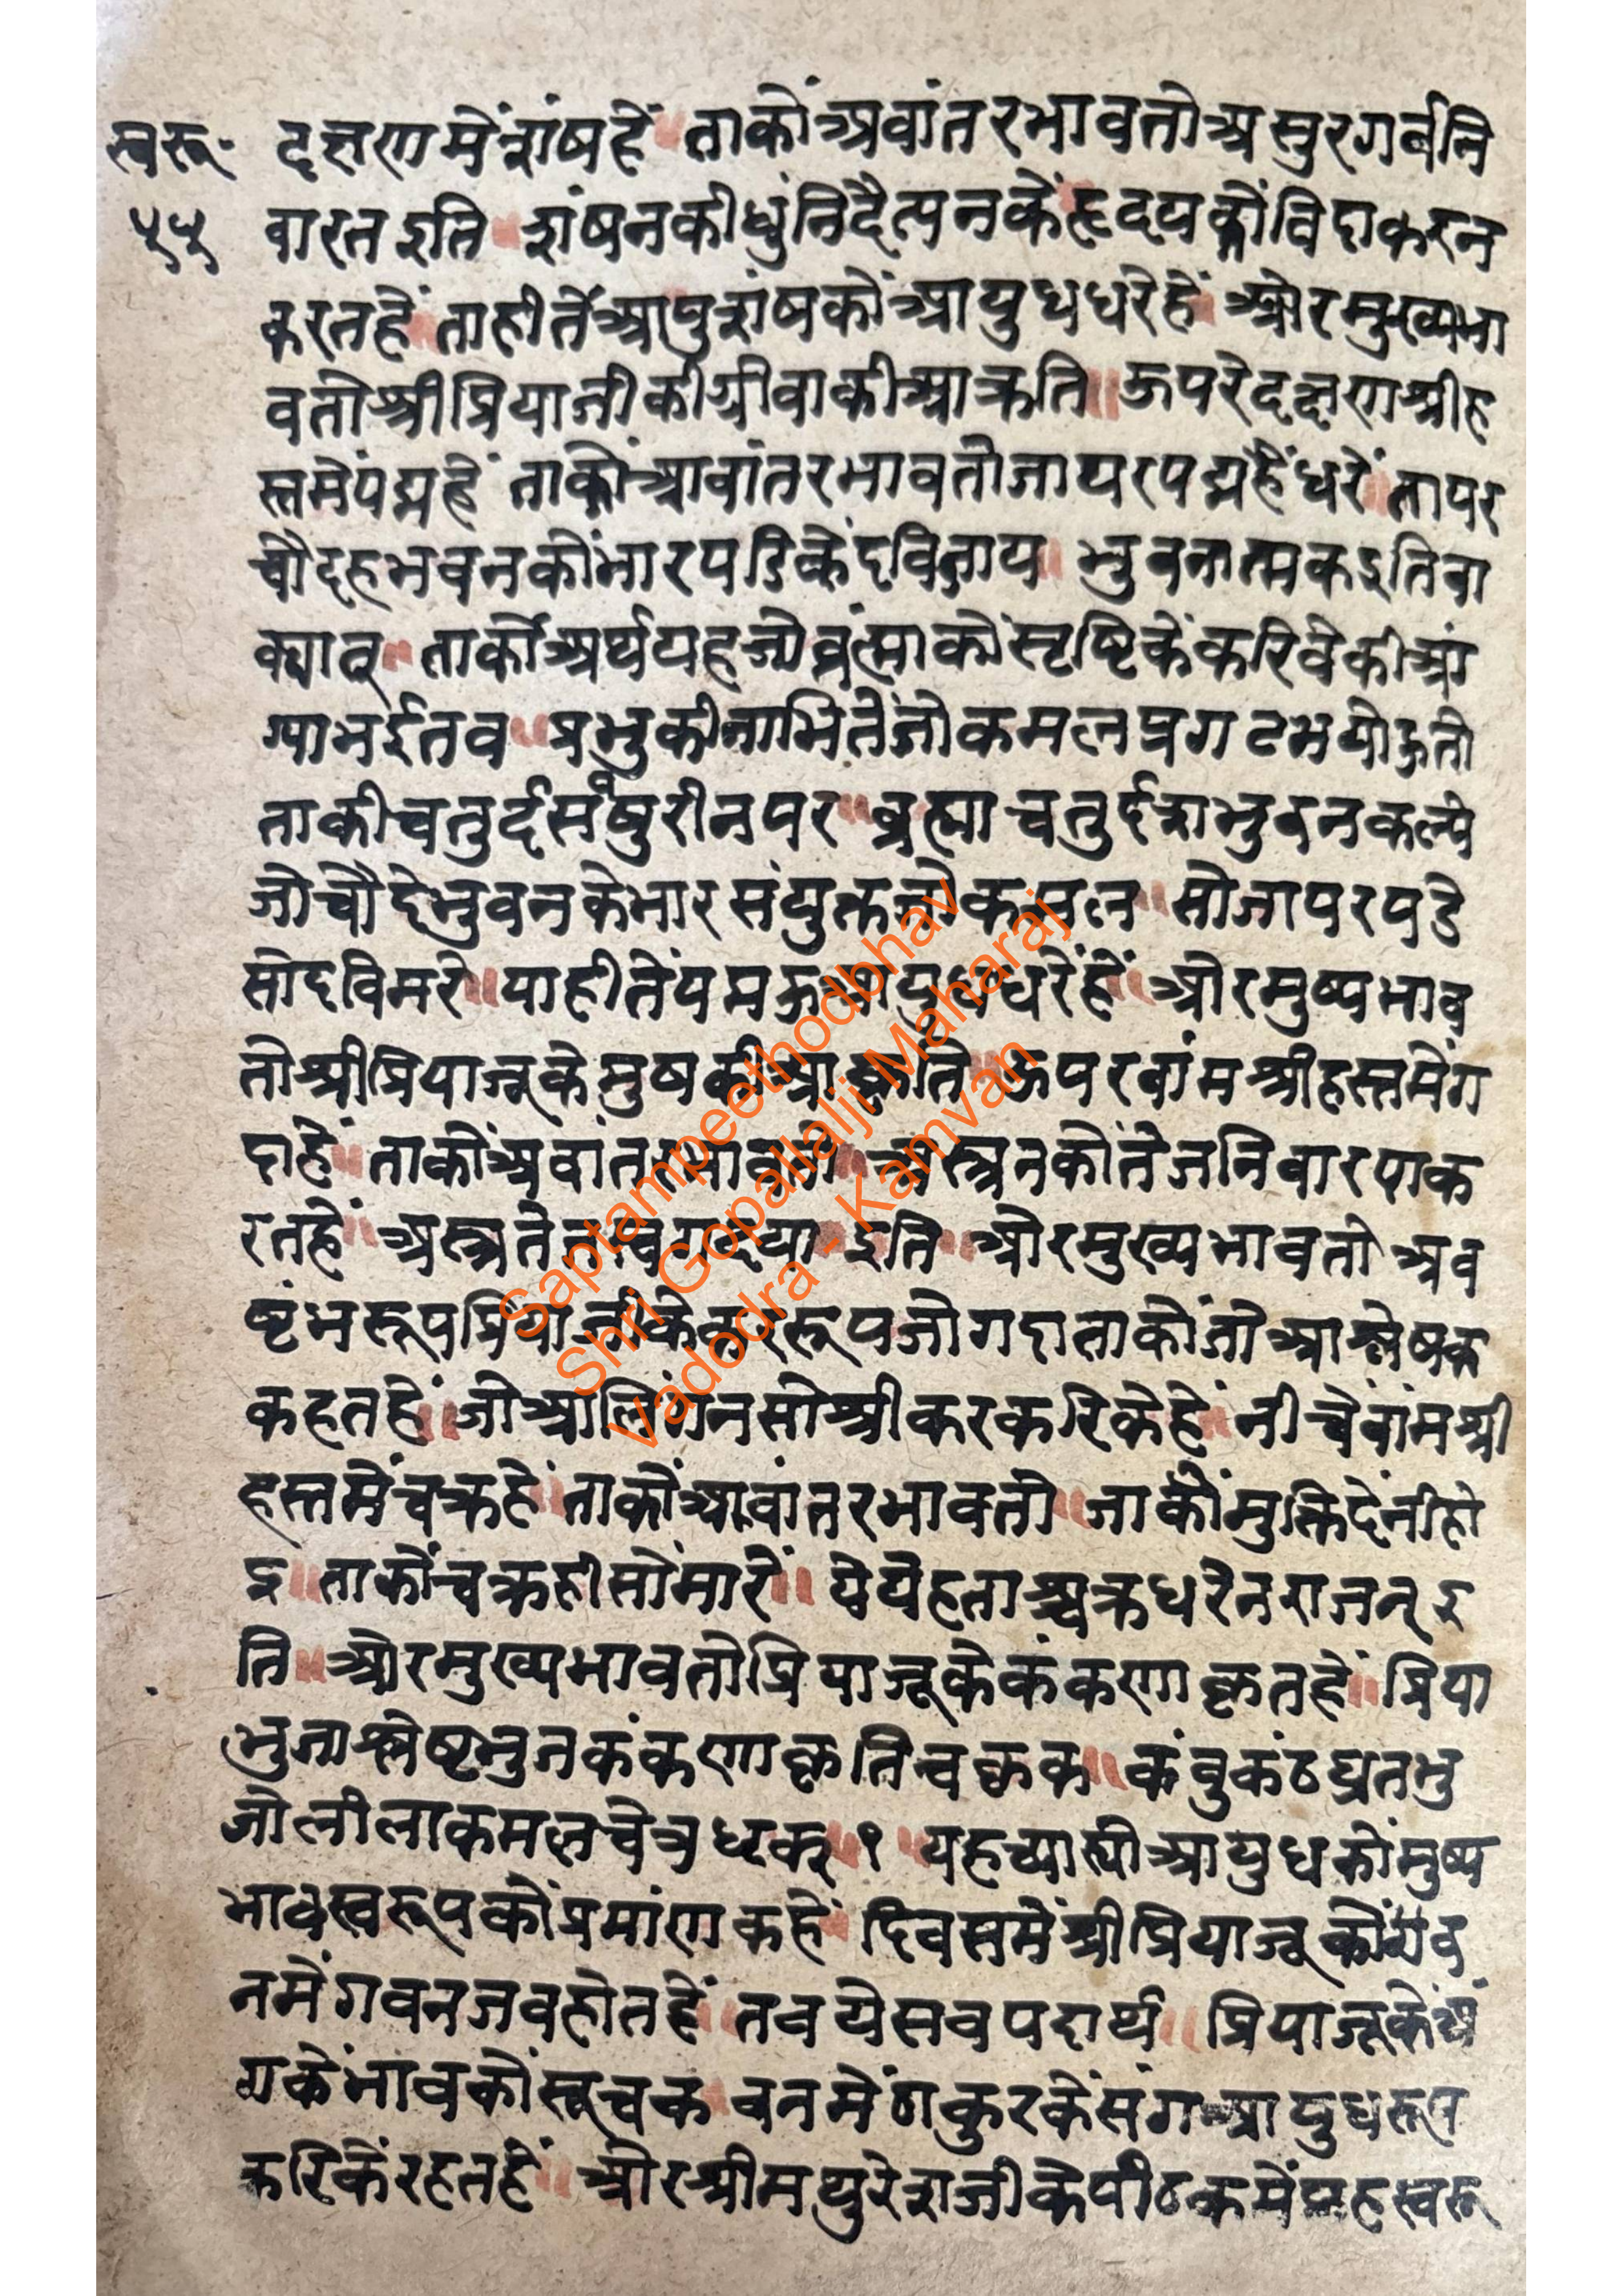 स्वरू॰
५५
दक्षणमेंशंषहें ॥ ताकोंअवांतरभावतोअसुरगर्वनि
वारतइति ॥ शंषनकीधुंनिदैत्यनकेंहृदयकोंविदाकरन
करतहें ॥ ताहीतेंआपुशंषकोंआयुधधरेहें ॥ ओरमुख्यभा
वतोश्रीप्रियाजीकीग्रीवाकीआक्रति ॥ ऊपरेदक्षणश्रीह
स्तमेंपद्महें ताकोंआवांतरभावतोजायरपद्महेंधरें ॥ तापर
चौदहभवनकोंभारपडिकेंदविजाय ॥ भुवनात्मकइतिवा
क्यात् ॥ ताकोंअर्थयहजोव्रंह्माकोंसृष्टिकेंकरिवेकीआं
ग्याभईतव ॥ प्रभुकीनाभितेंजोकमलप्रगटभयोहुतो
ताकीचतुर्दसंषुरीनपर ॥ ब्रह्माचतुर्दशभुवनकल्पे
जोचौदेभुवनकेभारसंयुक्तजोकमल ॥ सोजापरपडे
सोदविमरे ॥ याहीतेंपमकआयुधधरेंहें ॥ ओरमुष्यभाव
तोश्रीप्रियाजूकेमुषकीआकृति ॥ ऊपरवांमश्रीहस्तमेंग
दाहें ॥ ताकोंअवांतरभावतो ॥ अस्त्रनकोंतेजनिवारणक
रतहें ॥ अस्त्रतेजस्वगदया ॥ इति ॥ ओरमुख्यभावतोअव
ष्टंभरूपप्रियाजीकेकररूपजोगदाताकोंतोआश्लेषक
कहतहें ॥ जोआलिंगनसोश्रीकरकरिकेहें ॥ नीचेंवांमश्री
हस्तमेंचक्रहें ॥ ताकोंआवांतरभावतो ॥ जाकोंमुक्तिदेनीहो
इ ॥ ताकोंचक्रहीसोंमारें ॥ येयेहताश्चक्रधरेनराजन्इ
ति ॥ ओरमुख्यभावतोप्रियाजूकेकंकणाकृतहें ॥ प्रिया
भुजाश्लेष्टभुजकंकणाकृतिचक्रक ॥ कंवुकंठघ्रतभु
जोलीलाकमलवेत्रधृक् ॥ १ ॥ यहच्यास्योआयुधकोंमुष्य
भावस्वरूपकोंप्रमांणकहें ॥ दिवसमेंश्रीप्रियाजूकोंसद
नमेंगवनजवहोतहें ॥ तवयेसवपदार्थ ॥ प्रियाजूकेंअं
गकेंभावकोंसूचक ॥ वनमेंठाकुरकेंसंगआयुधरूप
करिकेंरहतहें ॥ ओरश्रीमथुरेशजीकेपीठकमेंयहस्वरू
Saptampeethodbhav
Shri Gopallalji Maharaj
Vadodra - Kamvan